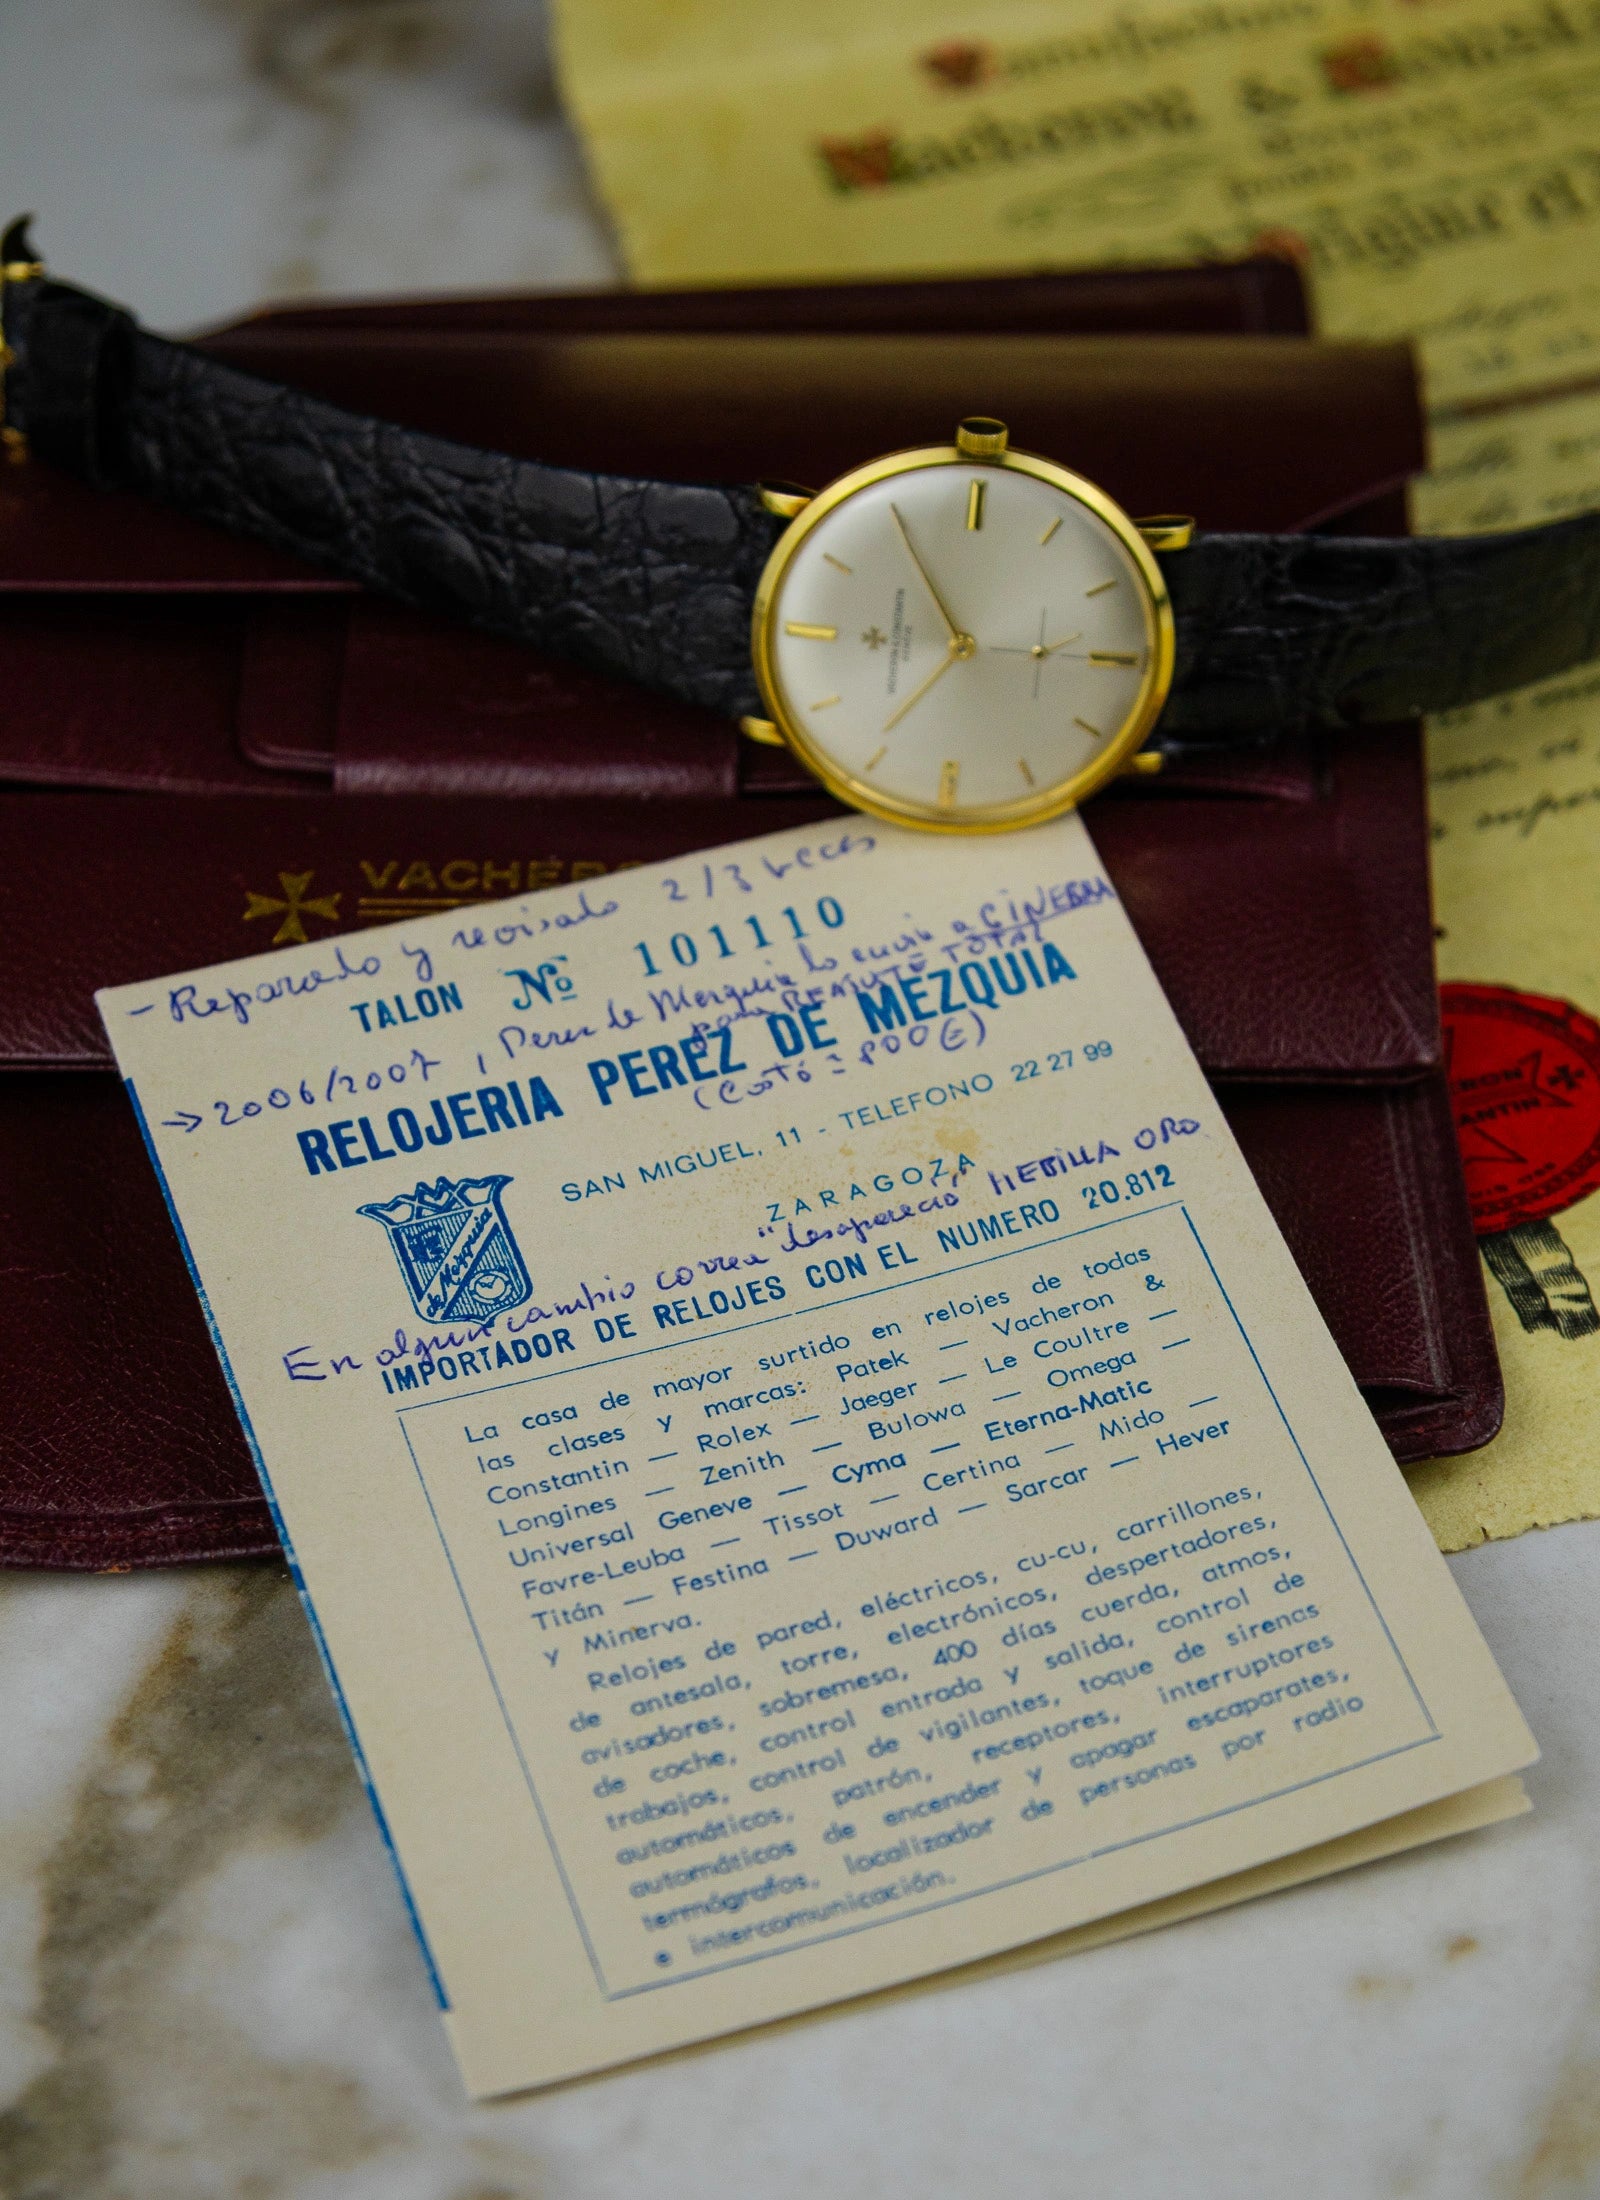 Vacheron &
VACHERON & CONSTANTIN
GENÈVE
VACHERO
- Reparado y revisado 2/3 veces
TALON Nº 101110
→ 2006/2007, Perez de Mezquia lo envió a GINEBRA
para REAJUTE TOTAL
RELOJERIA PEREZ DE MEZQUIA
(Costó = 800 €)
SAN MIGUEL, 11 - TELEFONO 22 27 99
ZARAGOZA
de Mezquia
En algun cambio correa "desapareció" HEBILLA ORO
IMPORTADOR DE RELOJES CON EL NUMERO 20.812
La casa de mayor surtido en relojes de todas
las clases y marcas: Patek — Vacheron &
Constantin — Rolex — Jaeger — Le Coultre —
Longines — Zenith — Bulowa — Omega —
Universal Geneve — Cyma — Eterna-Matic
Favre-Leuba — Tissot — Certina — Mido —
Titán — Festina — Duward — Sarcar — Hever
y Minerva.
Relojes de pared, eléctricos, cu-cu, carrillones,
de antesala, torre, electrónicos, despertadores,
avisadores, sobremesa, 400 días cuerda, atmos,
de coche, control entrada y salida, control de
trabajos, control de vigilantes, toque de sirenas
automáticos, patrón, receptores, interruptores
automáticos de encender y apagar escaparates,
termógrafos, localizador de personas por radio
e intercomunicación.